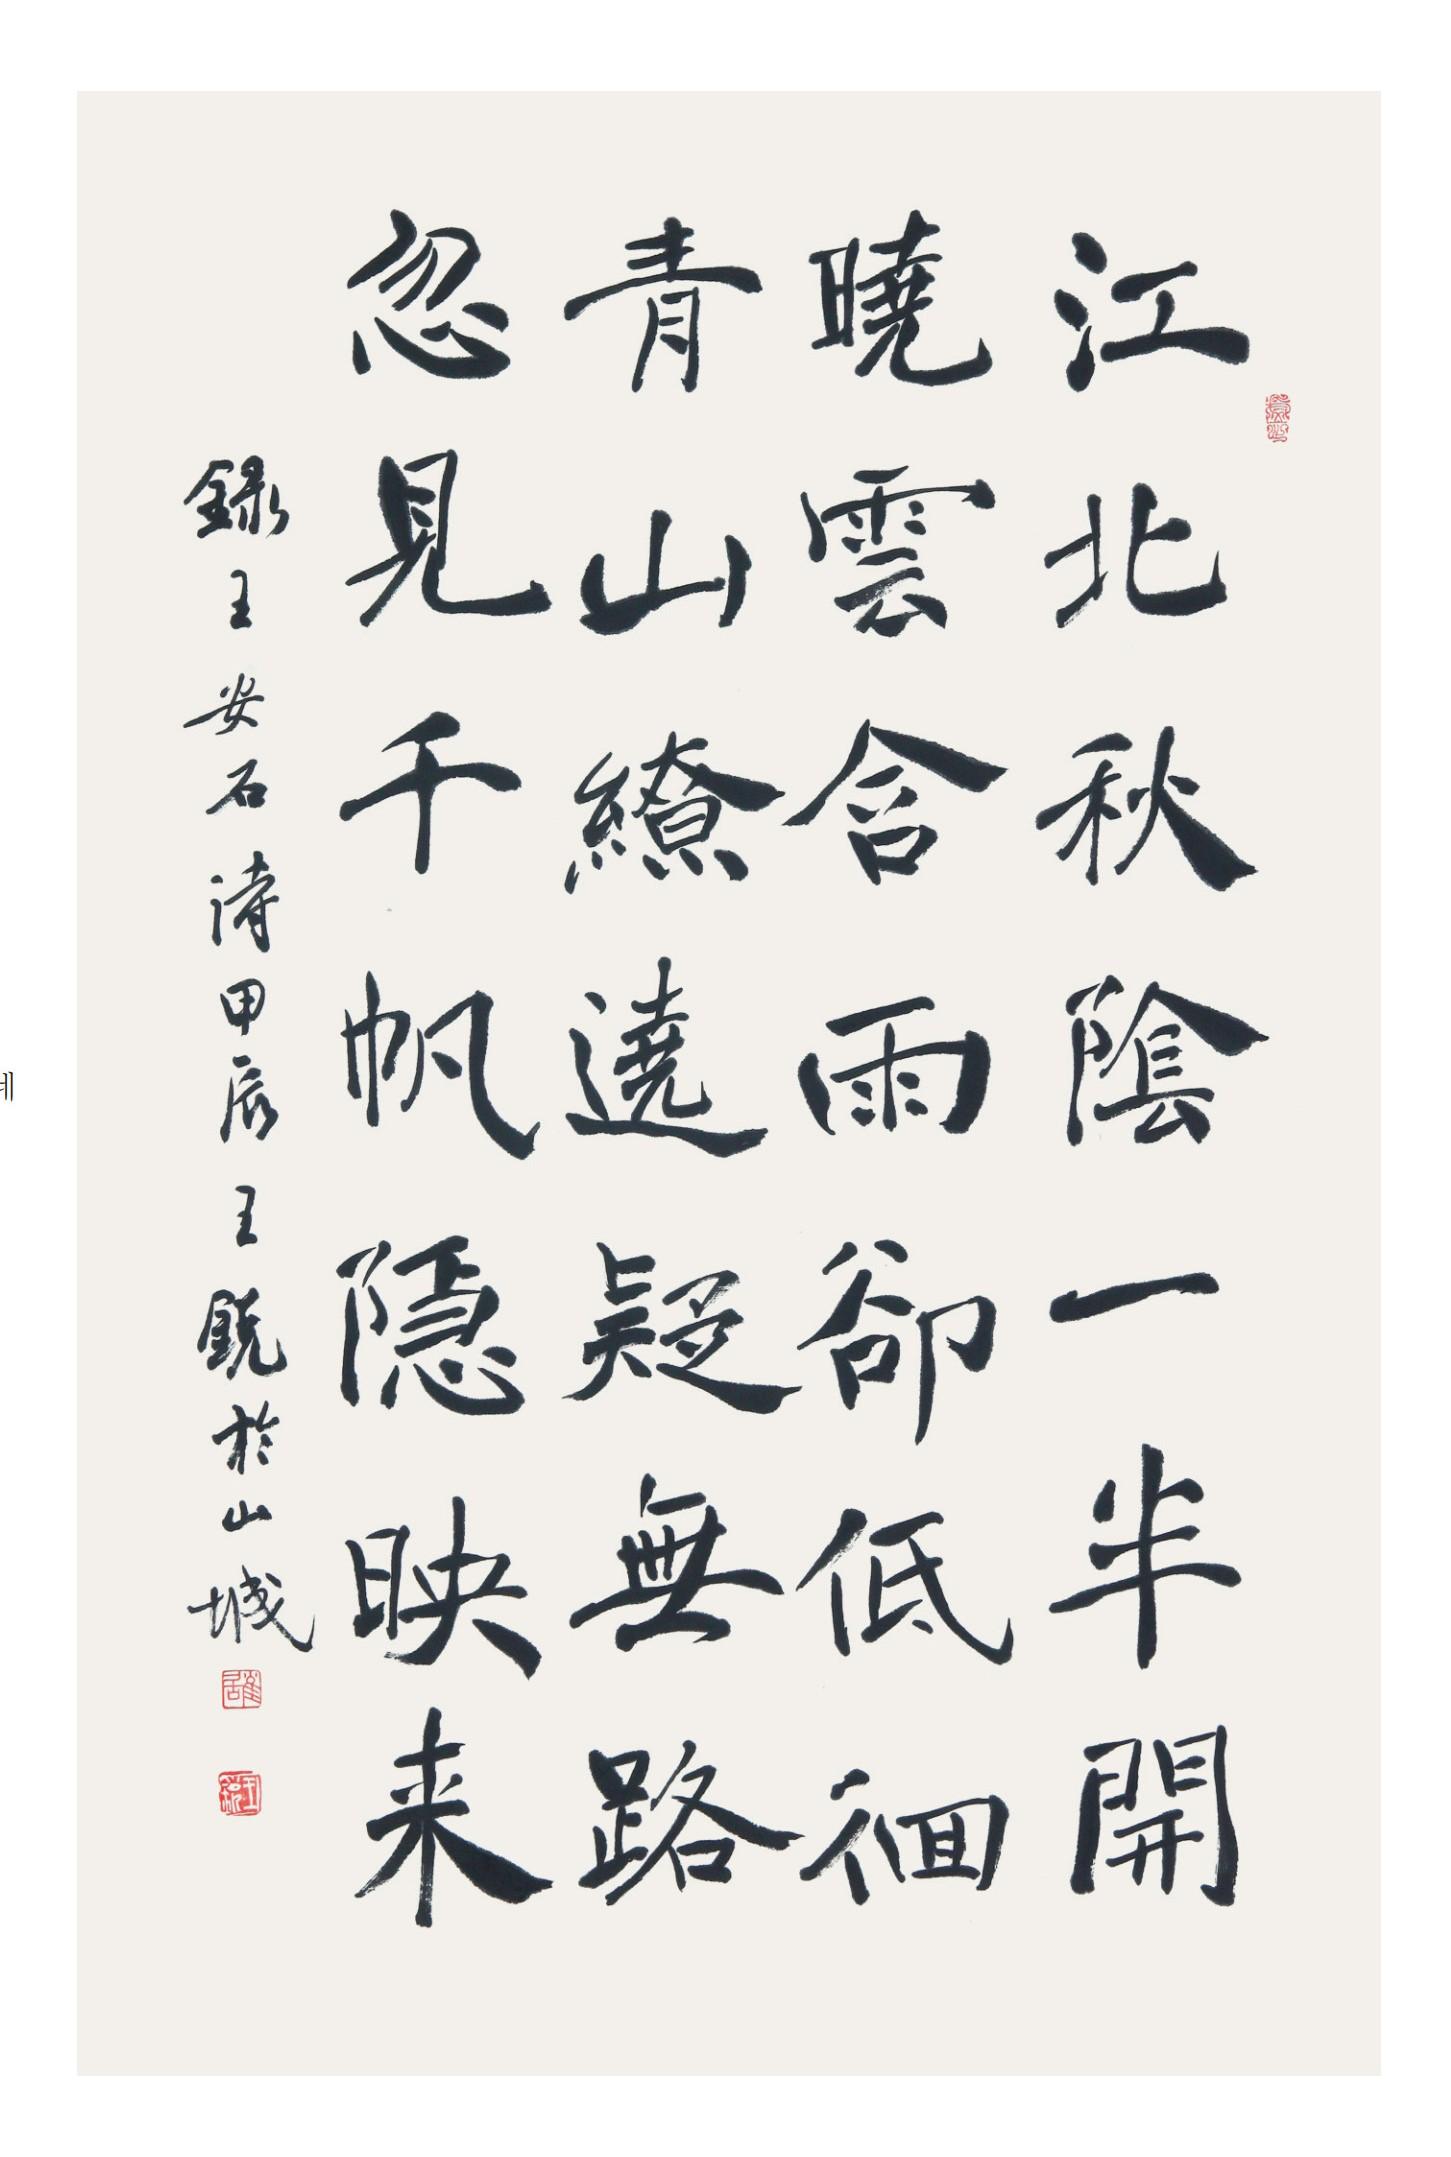 江北秋陰一半開
曉雲含雨卻低徊
青山繚遶疑無路
忽見千帆隱映来
録王安石詩甲辰王鋭於山城